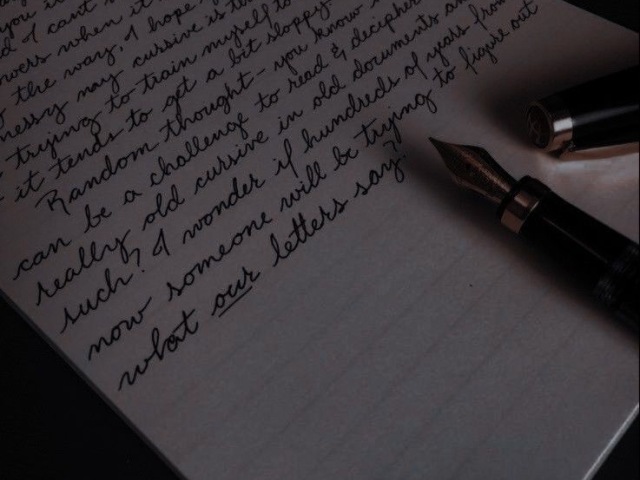 you is
d I can't s
wers when it
the way, I hope
messy nay cursive is tr
trying to train myself to
it tends to get a bit sloppy.
Random thought - you know
can be a challenge to read & decipher
really old cursive in old documents an
such? I wonder if hundreds of years from
now someone will be trying to figure out
what our letters say?